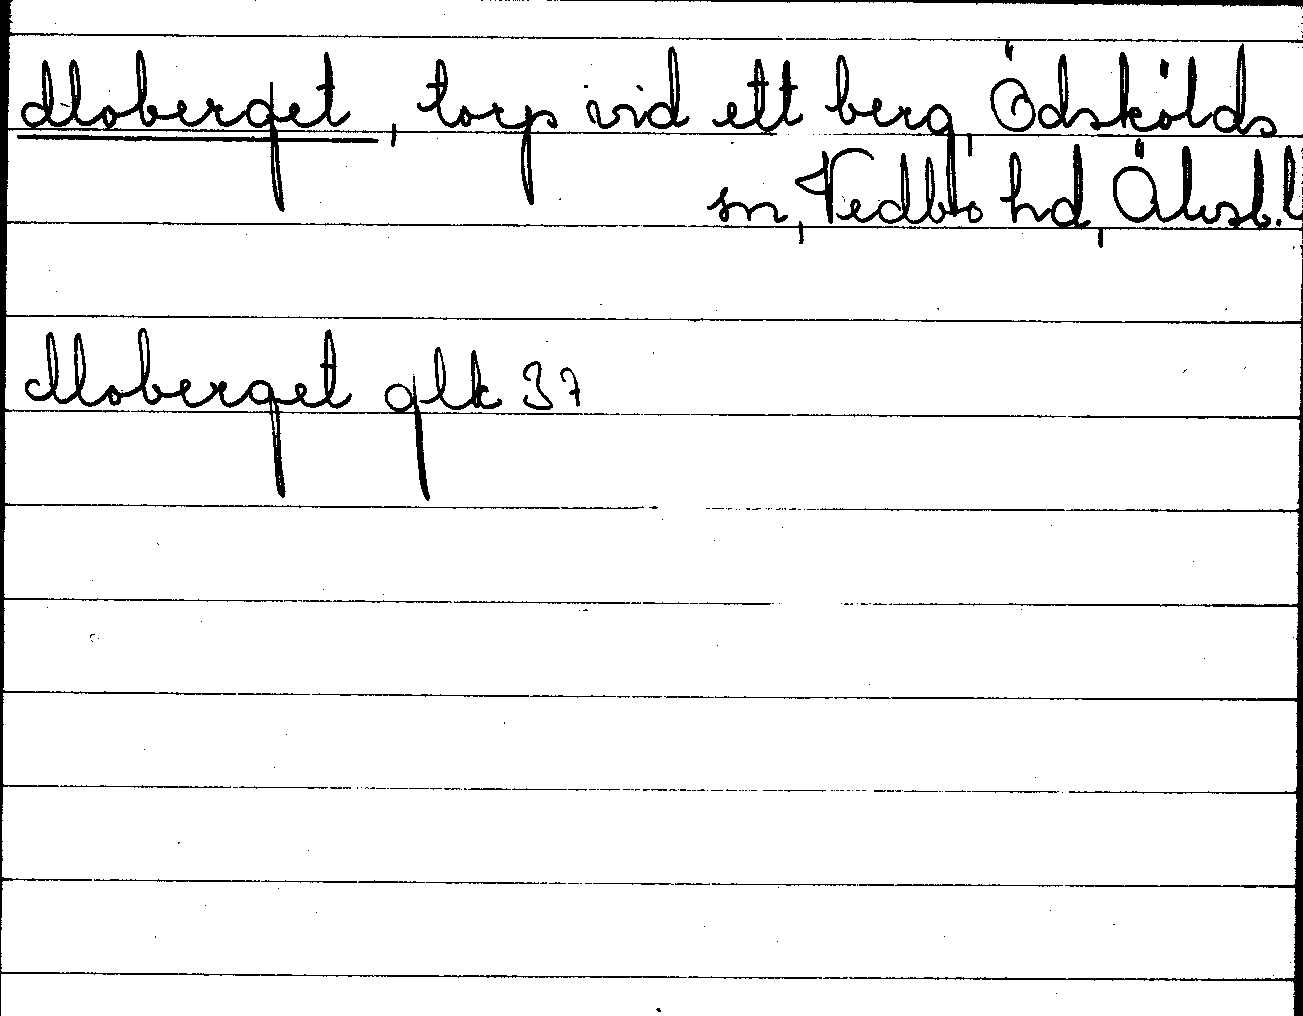 Moberget, torp vid ett berg, Ödskölds
sn, Vedbo hd, Älvsb. l
Moberget glk 37